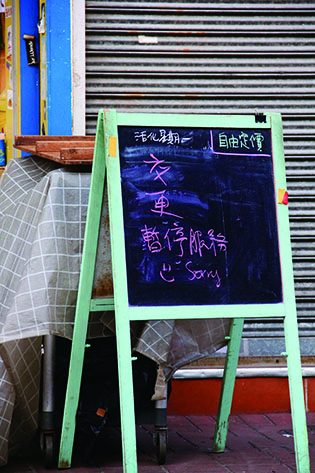 活化星期一
自由定價
交
更
暫停服務
Sorry